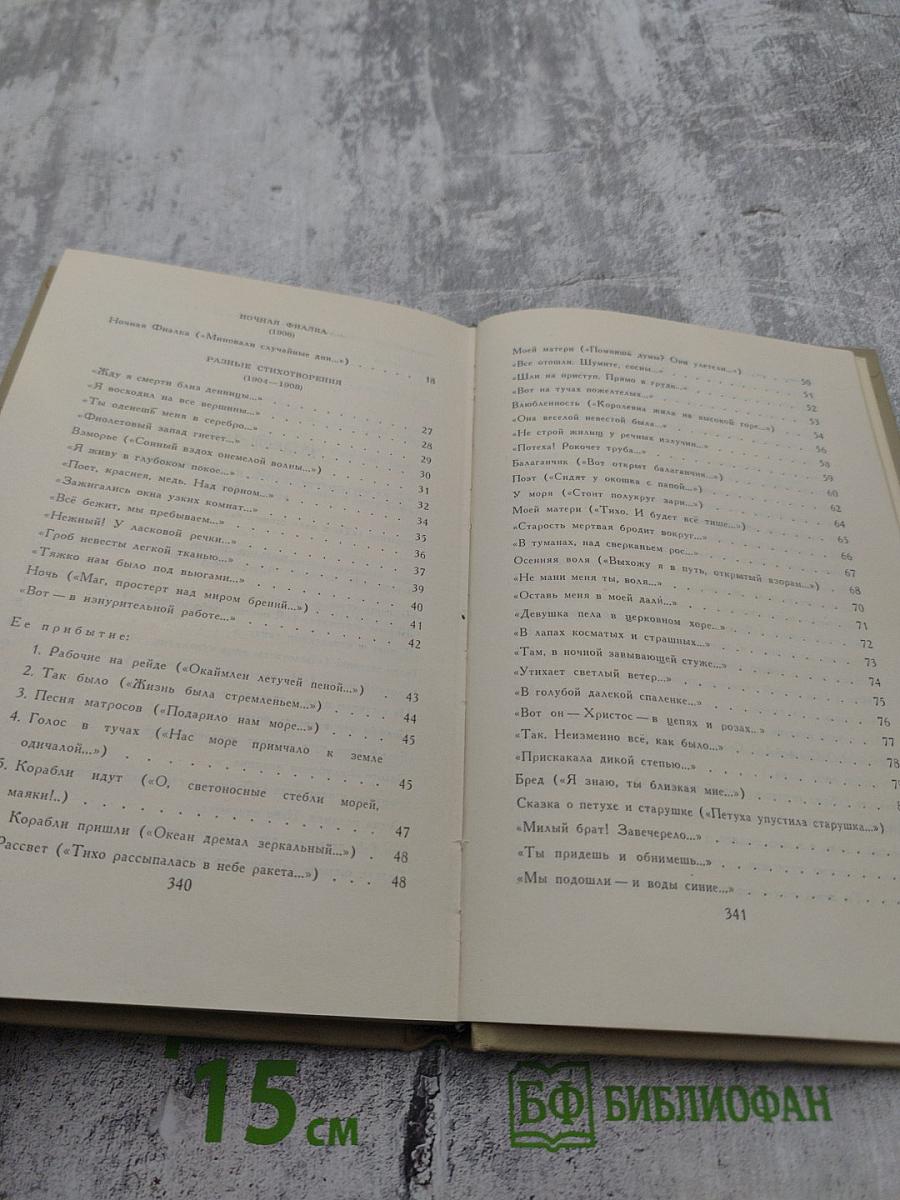 НОЧНАЯ ФИАЛКА
(1906)
Ночная Фиалка («Миновали случайные дни...») 18
РАЗНЫЕ СТИХОТВОРЕНИЯ
(1904—1908)
«Жду я смерти близ денницы...» . . . . . . . 27
«Я восходил на все вершины...» . . . . . . . 28
«Ты оденешь меня в серебро...» . . . . . . . 29
«Фиолетовый запад гнетет...» . . . . . . . 30
Взморье («Сонный вздох онемелой волны...») . . . . 31
«Я живу в глубоком покое...» . . . . . . . 32
«Поет, краснея, медь. Над горном...» . . . . . . 34
«Зажигались окна узких комнат...» . . . . . . 35
«Всё бежит, мы пребываем...» . . . . . . . 36
«Нежный! У ласковой речки...» . . . . . . . 37
«Гроб невесты легкой тканью...» . . . . . . . 39
«Тяжко нам было под вьюгами...» . . . . . . 40
Ночь («Маг, простерт над миром брений...») . . . . 41
«Вот — в изнурительной работе...» . . . . . . 42
Ее прибытие:
1. Рабочие на рейде («Окаймлен летучей пеной...») . 43
2. Так было («Жизнь была стремленьем...») . . . . 44
3. Песня матросов («Подарило нам море...») . . . . 45
4. Голос в тучах («Нас море примчало к земле
одичалой...») . . . . . . . . . . . 45
5. Корабли идут («О, светоносные стебли морей,
маяки!..») . . . . . . . . . . . . 47
Корабли пришли («Океан дремал зеркальный...») . 48
Рассвет («Тихо рассыпалась в небе ракета...») . . . 48
340
Моей матери («Помнишь думы? Они улетели...») 50
«Все отошли. Шумите, сосны...» 51
«Шли на приступ. Прямо в грудь...» 52
«Вот на тучах пожелтелых...» 53
Влюбленность («Королевна жила на высокой горе...») 54
«Она веселой невестой была...» 56
«Не строй жилищ у речных излучин...» 58
«Потеха! Рокочет труба...» 59
Балаганчик («Вот открыт балаганчик...») 60
Поэт («Сидят у окошка с папой...») 62
У моря («Стоит полукруг зари...») 64
Моей матери («Тихо. И будет всё тише...») 65
«Старость мертвая бродит вокруг...» 66
«В туманах, над сверканьем рос...» 67
Осенняя воля («Выхожу я в путь, открытый взорам...») 68
«Не мани меня ты, воля...» 70
«Оставь меня в моей дали́...» 71
«Девушка пела в церковном хоре...» 72
«В лапах косматых и страшных...» 73
«Там, в ночной завывающей стуже...» 74
«Утихает светлый ветер...» 75
«В голубой далекой спаленке...» 76
«Вот он — Христос — в цепях и розах...» 77
«Так. Неизменно всё, как было...» 78
«Прискакала дикой степью...»
Бред («Я знаю, ты близкая мне...»)
Сказка о петухе и старушке («Петуха упустила старушка...»)
«Милый брат! Завечерело...»
«Ты придешь и обнимешь...»
«Мы подошли — и воды синие...»
341
15 см
БФ БИБЛИОФАН